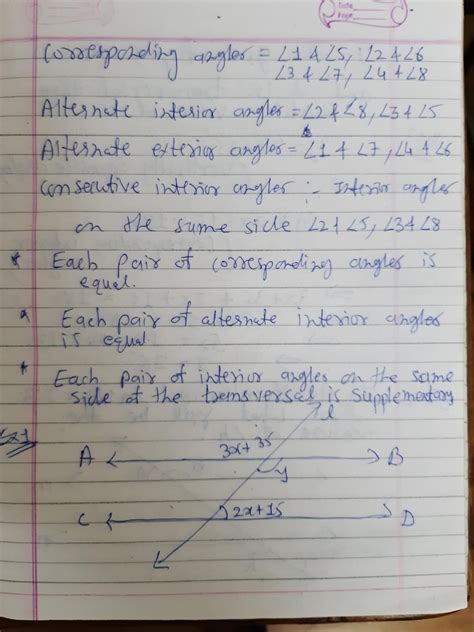 Date
Page
Corresponding angles = ∠1 & ∠5, ∠2 & ∠6
∠3 & ∠7, ∠4 & ∠8
Alternate interior angles = ∠2 & ∠8, ∠3 & ∠5
Alternate exterior angles = ∠1 & ∠7, ∠4 & ∠6
Consecutive interior angles :- Interior angles
on the same side ∠2 & ∠5, ∠3 & ∠8
* Each pair of corresponding angles is
equal.
* Each pair of alternate interior angles
is equal
* Each pair of interior angles on the same
side of the transversal is supplementary
l
A 3x+35 B
y
C 2x+15 D